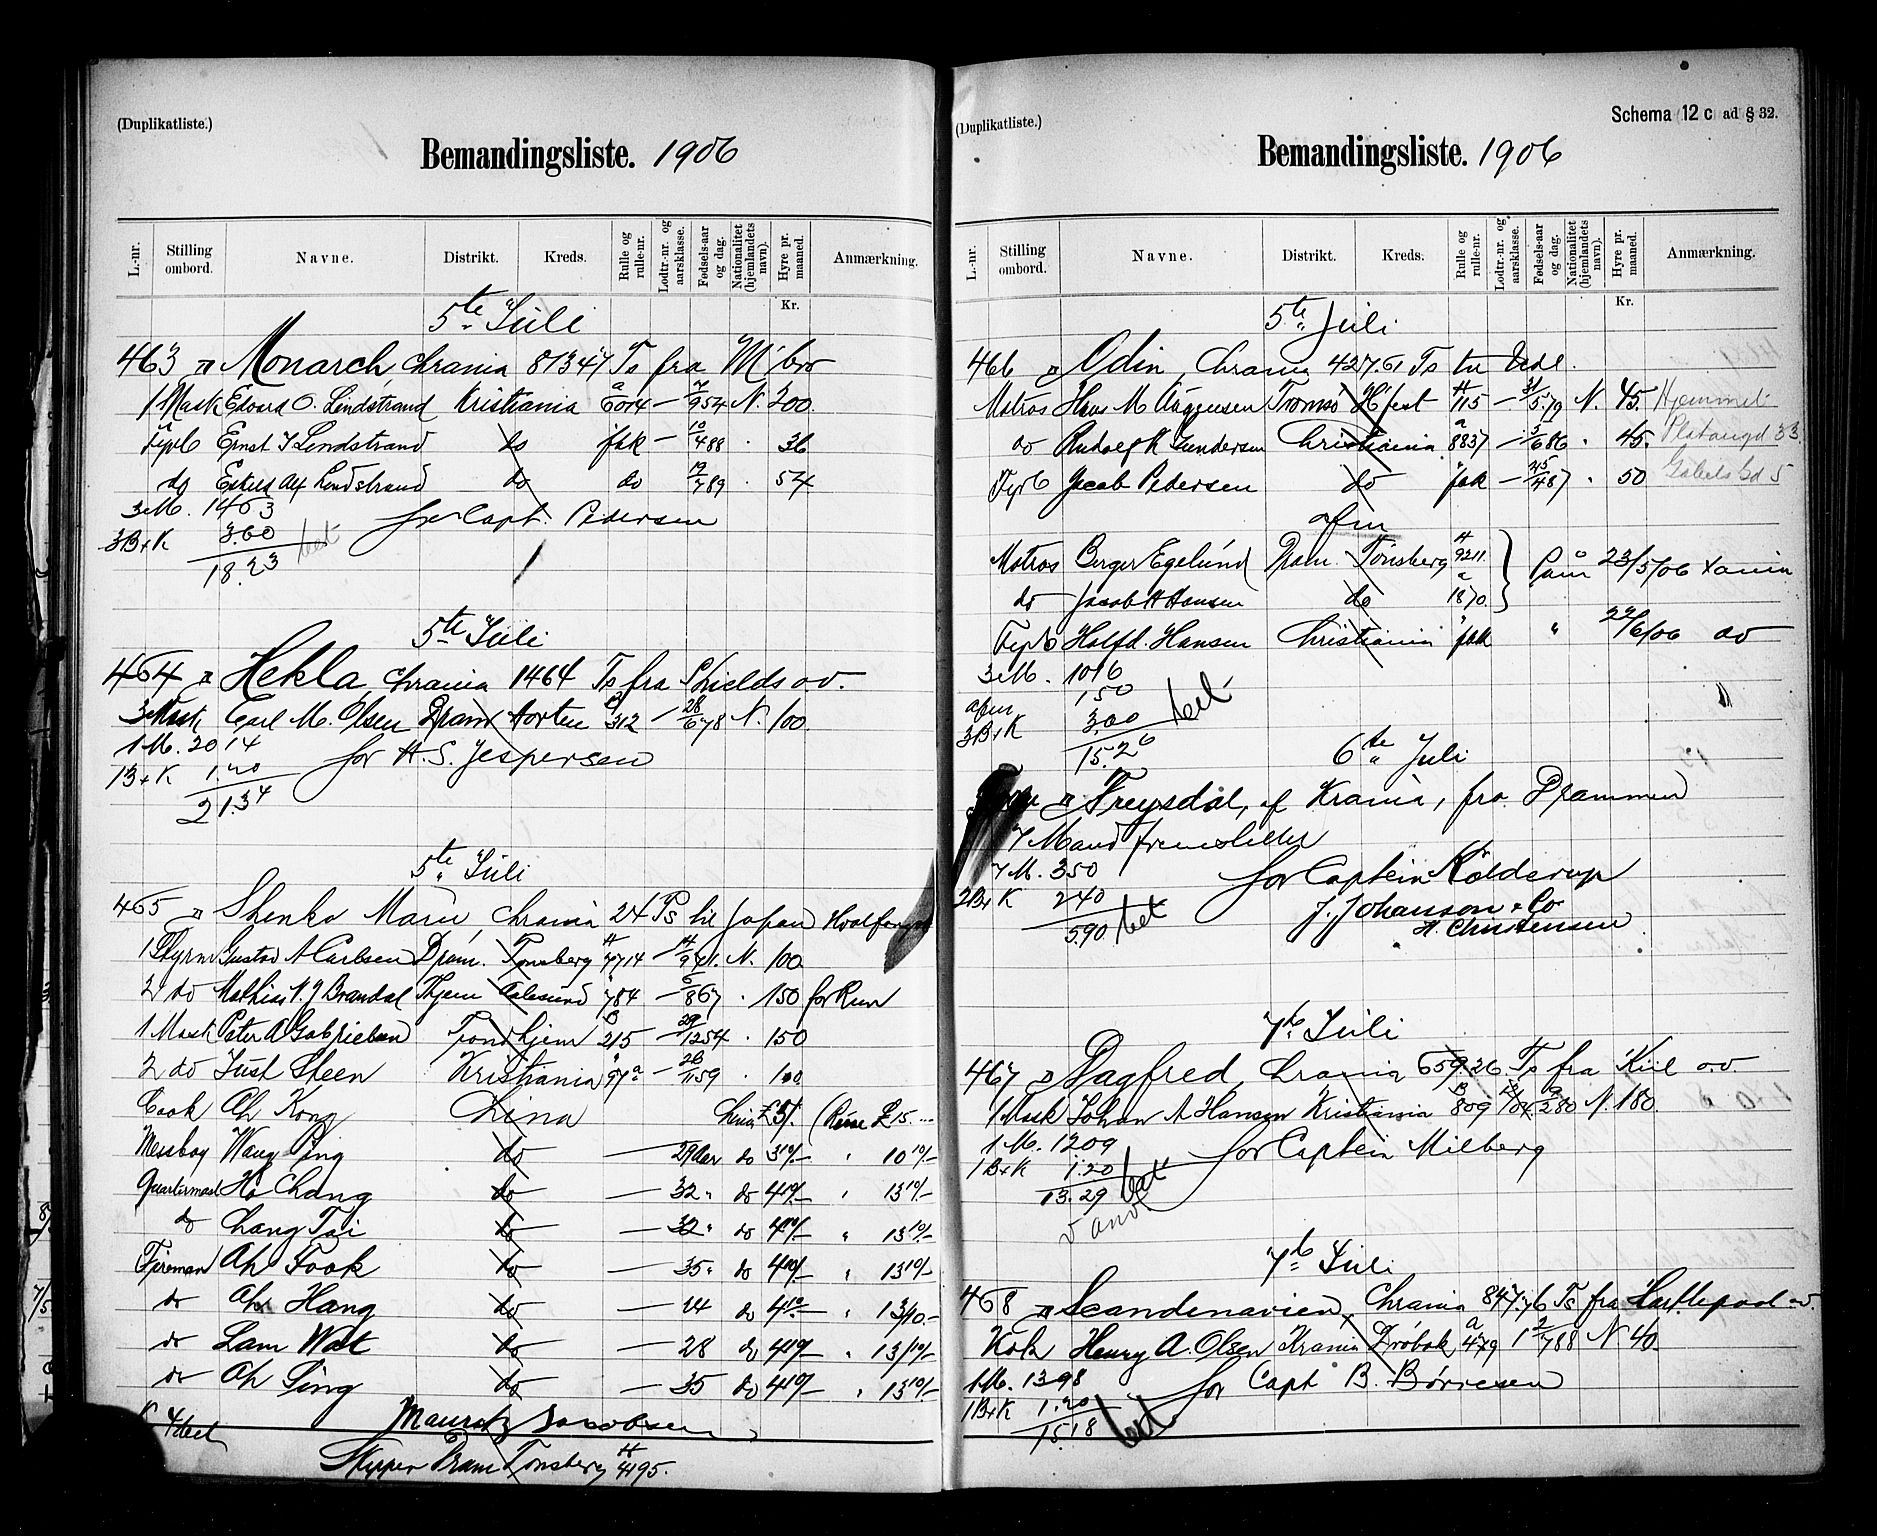 (Duplikatliste.)
Bemandingsliste. 1906
L.-nr. Stilling ombord. Navne. Distrikt. Kreds. Rulle og rulle-nr. Lodtr.-nr. og aarsklasse. Fødsels-aar og dag. Nationalitet (hjemlandets navn). Hyre pr. maaned. Anmærkning.
Kr.
5te Juli
463 Monarch, Chrania 81347 Ts fra M'bro
1 Mask Edvard O. Lindstrand Kristiania a 6074 — 7/9 54 N. 200.
Fyrb Ernst J Lindstrand do fak — 10/4 88 . 36
do Eskild Alf Lindstrand do do 12/7 89 . 54
3 M. 1463 for Capt. Pedersen
3B+K 3.60 bet
18.23
5te Juli
464 Hekla, Chrania 1464 Ts fra Shields o.v.
3 Mask Carl M. Olsen Dram Horten 312 — 28/6 78 N. 100.
1 M. 2014 for H. S. Jespersen
1B+K 1.20
21.34
5te Juli
465 Shenko Maru, Chrania 24 Ts til Japan Hvalfangst
1 Styrm Gustav A Carlsen Dram. Tønsberg 7714 — 14/9 71. N. 100.
2 do Mathias N. J Brandal Thjem Aalesund 784 — 6/8 67 . 150 for Run
1 Mask Peter A Gabrielsen Trondhjem 215 — 29/12 54 . 150
2 do Just Steen Kristiania 97a — 26/11 59 . 100.
Cook Ah Kong China
Messboy Wang Ping do — 29 der do 3 10/- " 10 10/-
Quartermast Ho Chang do — 32 " do 4 10/- " 13 10/-
do Chang Tai do — 32 " do 4 10/- " 13 10/-
Fireman Ah Fook do — 35 " do 4 10/- " 13 10/-
do Ah Hang do — 24 do 4 10/- " 13/10.-
do Lam Wat do — 28 do 4 10/- " 13/10/-
do Ah Sing do — 35 do 4 10/- " 13 10/-
Mauritz Jacobsen
Skipper Dram Tønsberg 4195.
(Duplikatliste.) Schema 12 c ad § 32.
Bemandingsliste. 1906
L.-nr. Stilling ombord. Navne. Distrikt. Kreds. Rulle og rulle-nr. Lodtr.-nr. og aarsklasse. Fødsels-aar og dag. Nationalitet (hjemlandets navn). Hyre pr. maaned. Anmærkning.
Kr.
5te Juli
466 Odin, Chrania 427.61 Ts til Udl.
Matros Hans M Aagensen Tromsø H'fest 115 — 31/5 79 N. 45. Hjemmet
do Rudolf K Gundersen Christiania a 8837 — 5/6 86 . 45. Platougd 33
Fyrb Jacob Pedersen do fak — 25/4 87 . 50 Gabels Gd 5
afm
Matros Berger Egelund Dram. Tønsberg 9211. Paam 23/5/06
do Jacob H Hansen do 1870.
Fyrb Halfd. Hansen Christiania fak " 22/6/06 do
3 M. 1076
afm 1.50
3B+K 3.00 bet
15.26
6te Juli
Freysdal, af Krania, fra Drammen
7 Mand fremstillet
7 M. 350 for Captein Kolderup
2B+K 240 J. Johanson & Co
5.90 bet H. Christensen
7de Juli
467 Dagfred, Chrania 659.26 Ts fra Kiel o.v.
1 Mask Johan A Hansen Kristiania 809 280 N. 180.
1 M. 1209 for Captein Milberg
1B+K 1.20
13.29 bet
7de Juli
468 Scandinavien, Chrania 847.76 Ts fra Hartlepool o.v.
Kok Henry A. Olsen Krania Drøbak a 479 1 2/7 88 N 40.
1 M. 1398 for Capt B. Børresen
1B+K 1.20
15.18 bet